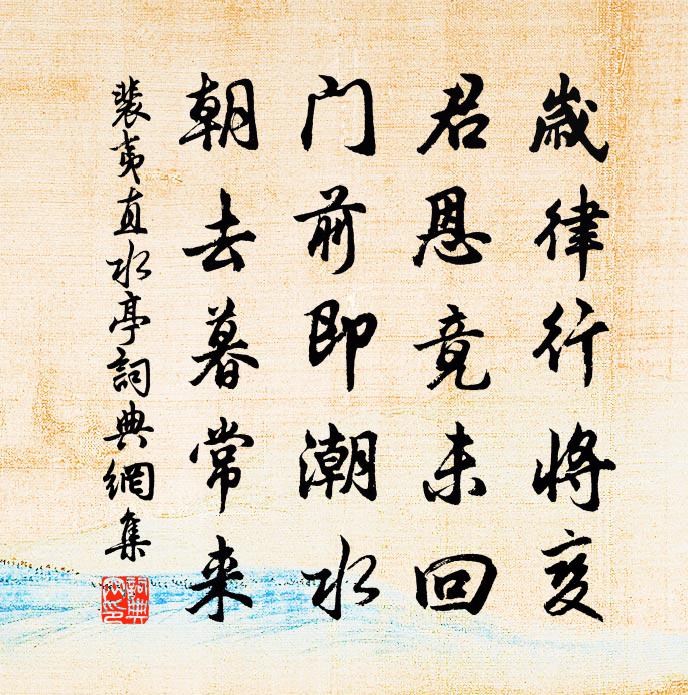 歲律行将变
君恩竟未回
门前即潮水
朝去暮常来
裴夷直水亭詞典網集